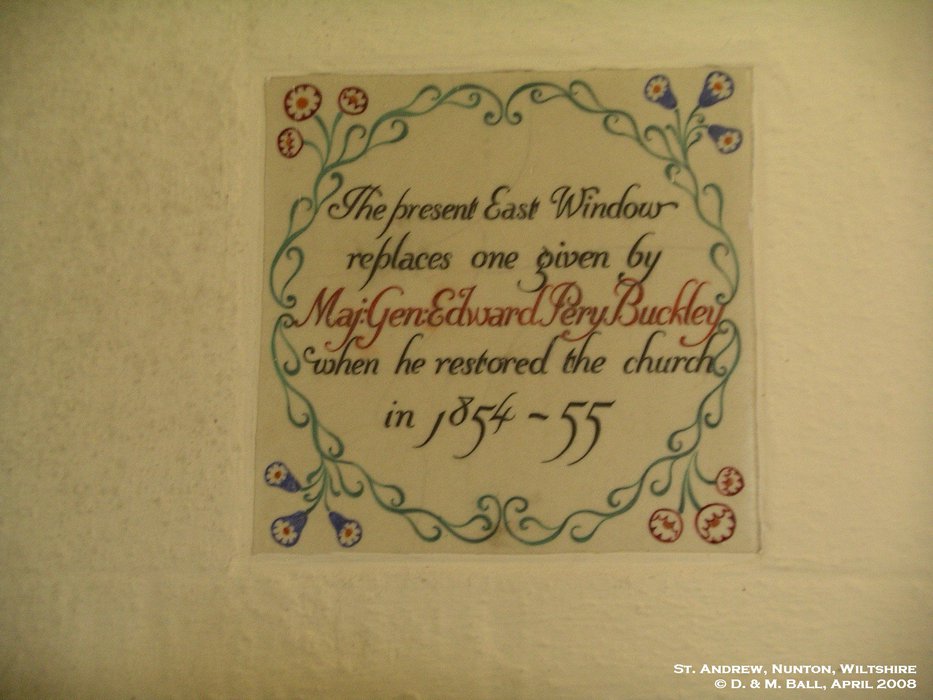 The present East Window
replaces one given by
Maj:Gen:Edward Pery Buckley
when he restored the church
in 1854 ~ 55
St. Andrew, Nunton, Wiltshire
© D. & M. Ball, April 2008